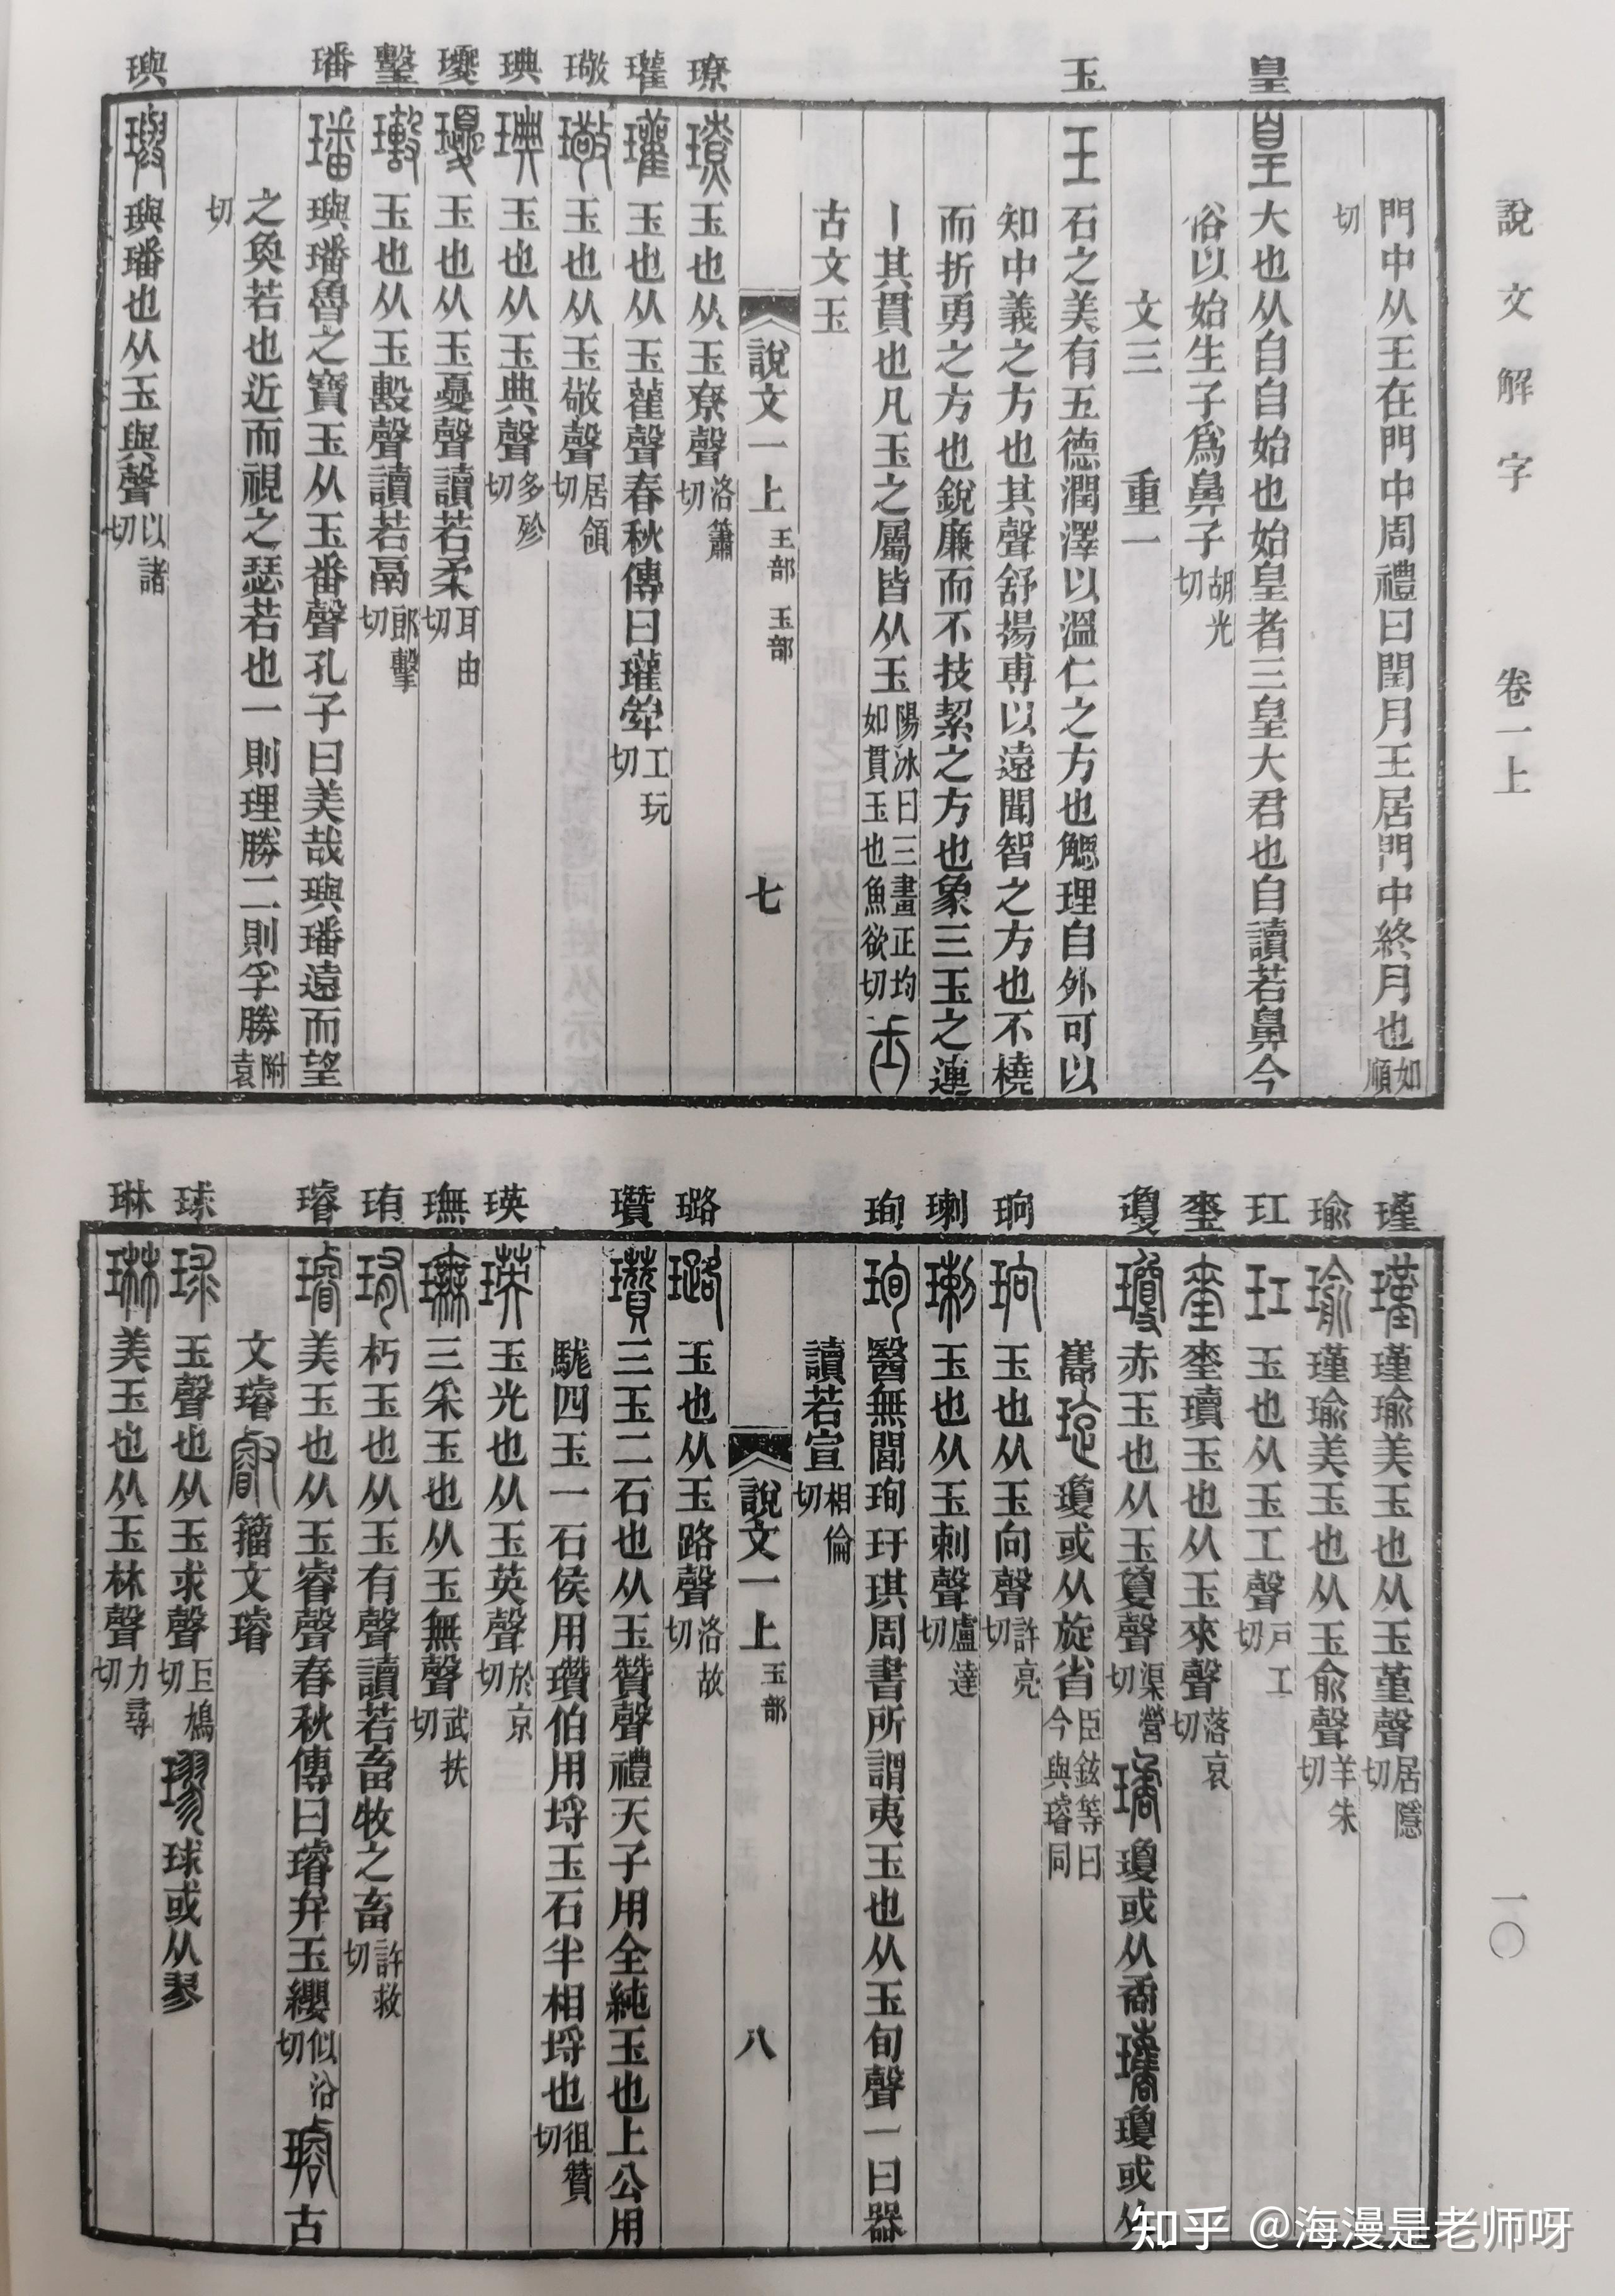 說文解字 卷一上
一〇
皇
玉
璙
瓘
璥
琠
瓇
璠
璵
門中从王在門中周禮曰閏月王居門中終月也如順
切
皇大也从自自始也始皇者三皇大君也自讀若鼻今
俗以始生子爲鼻子胡光切
文三 重一
王石之美有五德潤澤以溫仁之方也䚡理自外可以
知中義之方也其聲舒揚尃以遠聞智之方也不橈
而折勇之方也銳廉而不技絜之方也象三玉之連
丨其貫也凡玉之屬皆从玉陽冰曰三畫正均如貫玉也魚欲切
古文玉
說文一上 王部 玉部 七
璙玉也从玉尞聲洛簫切
瓘玉也从玉雚聲春秋傳曰瓘斚工玩切
璥玉也从玉敬聲居領切
琠玉也从玉典聲多殄切
瓇玉也从玉夒聲讀若柔耳由切
玉也从玉毄聲讀若鬲郎擊切
璠璵璠魯之寶玉从玉番聲孔子曰美哉璵璠遠而望
之奐若也近而視之瑟若也一則理勝二則孚勝附袁
切
璵璵璠也从玉與聲以諸切
瑾
瑜
玒
瓊
珦
珣
璐
瓚
瑛
璑
珛
璿
球
琳
瑾瑾瑜美玉也从玉堇聲居隱切
瑜瑾瑜美玉也从玉俞聲羊朱切
玒玉也从玉工聲戶工切
瓄玉也从玉來聲落哀切
瓊赤玉也从玉敻聲渠營切璚瓊或从矞瓗瓊或从
巂琁瓊或从旋省臣鉉等曰今與璿同
珦玉也从玉向聲許亮切
玉也从玉剌聲盧達切
珣醫無閭珣玗琪周書所謂夷玉也从玉旬聲一曰器
讀若宣相倫切
說文一上 玉部 八
璐玉也从玉路聲洛故切
瓚三玉二石也从玉贊聲禮天子用全純玉也上公用
駹四玉一石侯用瓚伯用埒玉石半相埒也徂贊切
瑛玉光也从玉英聲於京切
璑三采玉也从玉無聲武扶切
珛朽玉也从玉有聲讀若畜牧之畜許救切
璿美玉也从玉睿聲春秋傳曰璿弁玉纓似沿切古
文璿叡籀文璿
球玉聲也从玉求聲巨鳩切璆球或从翏
琳美玉也从玉林聲力尋切
知乎 @海漫是老师呀